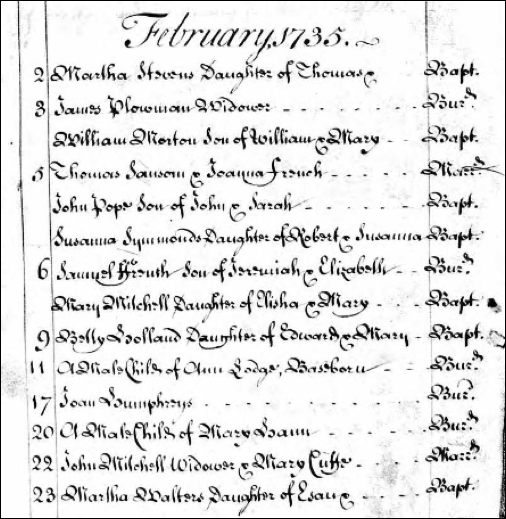 February, 1735.
2 Martha Stevens Daughter of Thomas x Bapt.
3 James Plowman Widower - - - - - Bur.d
William Morton Son of William x Mary - - Bapt.
5 Thomas Sansom x Joanna French - - - - - Marr.d
John Pope Son of John x Sarah - - - - - Bapt.
Susanna Symmonds Daughter of Robert x Susanna Bapt.
6 Samuel Ffrench Son of Jeremiah x Elizabeth - - Bur.d
Mary Mitchell Daughter of Elisha x Mary - - - Bapt.
9 Betty Holland Daughter of Edward x Mary - Bapt.
11 A Male Child of Ann Lodge, Baseborn - - Bur.d
17 Joan Humphreys - - - - - - - - Bur.d
20 A Male Child of Mary Hann - - - - - Bur.d
22 John Mitchell Widower x Mary Cuffe - - - - Marr.d
23 Martha Walters Daughter of Esau x - - - - Bapt.